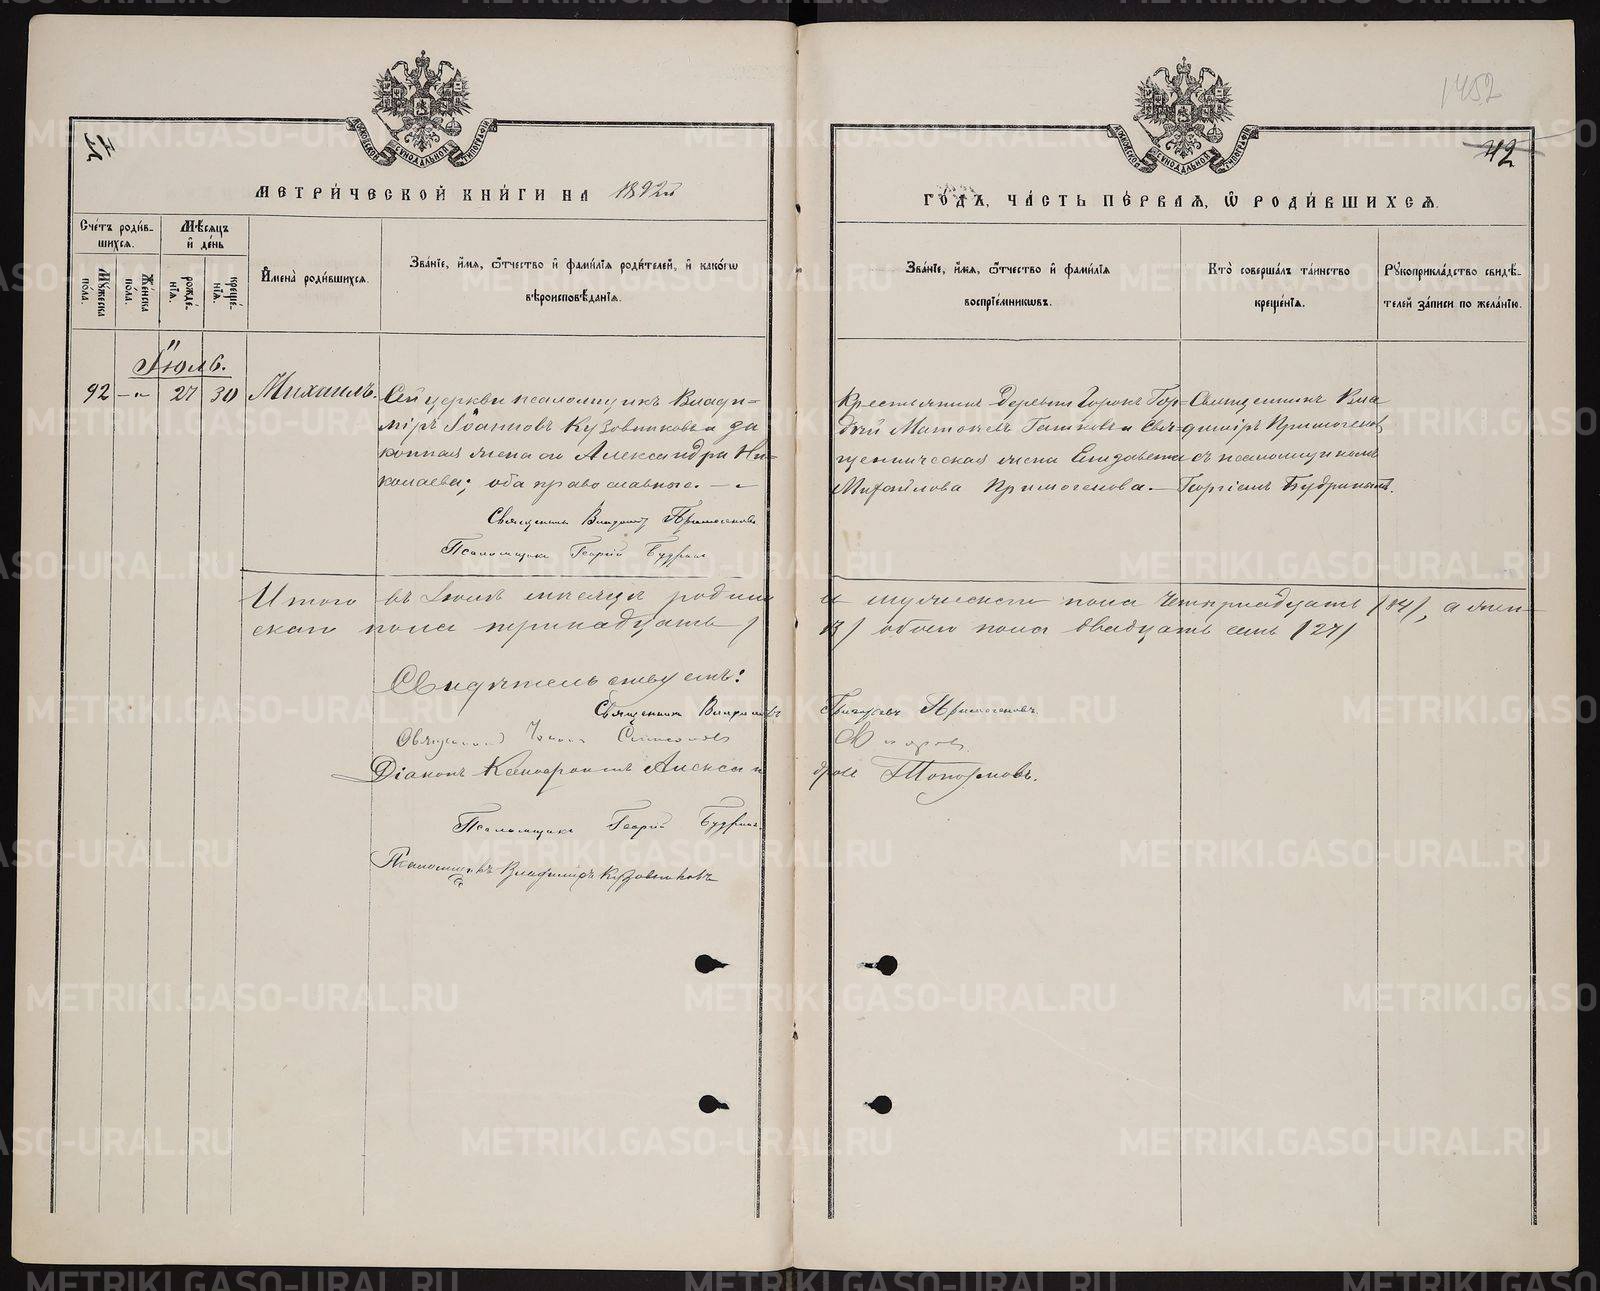 1452
42
МОСКОВСКОЙ СѴНОДАЛЬНОЙ ТИПОГРАФІИ
МОСКОВСКОЙ СѴНОДАЛЬНОЙ ТИПОГРАФІИ
МЕТРИ́ЧЕСКОЙ КНИ́ГИ НА 1892й
ГО́ДЪ, ЧА́СТЬ ПЕ́РВАЯ, Ѡ РОДИ́ВШИХСЯ.
Сче́тъ роди́в-
шихся.
Мꙋ́жеска по́ла.
Же́нска по́ла.
Мѣ́сяцъ
и҆ де́нь
рожде́-
нїя.
креще́-
нїя.
И҆мена̀ роди́вшихся.
Зва́нїе, и҆́мя, ѻ҆́тчество и҆ фами́лїя роди́телей, и҆ како́гѡ
вѣроисповѣ́данїя.
Зва́нїе, и҆́мя, ѻ҆́тчество и҆ фами́лїя
воспрїе́мникѡвъ.
Кто̀ соверша́лъ та́инство
креще́нїя.
Рꙋкоприкла́дство свидѣ́-
телей за́писи по жела́нїю.
Іюль.
92 -"- 27 30 Михаилъ.
Сей церкви псаломщикъ Влади-
міръ Іоанновъ Кузовниковъ и за
конная жена его Александра Ни-
колаева; оба православные.
Священникъ Владиміръ Примогеновъ
Псаломщикъ Георгій Будринъ
Крестьянинъ деревни Горокъ
Священническая жена Елизавета
Михайлова Примогенова.
Священникъ Вла
диміръ Примогеновъ
съ псаломщикомъ
Георгіемъ Будринымъ.
Итого въ Іюлѣ мѣсяцѣ родилось мужескаго пола четырнадцать /14/, а жен-
скаго пола тринадцать /13/ обоего пола двадцать семь /27/
Свидѣтельствуемъ:
Священникъ Владиміръ Григорьевъ Примогеновъ.
Священникъ
Діаконъ Александровъ Топорковъ.
Псаломщикъ Георгій Будринъ.
Псаломщикъ Владиміръ Кузовниковъ
METRIKI.GASO-URAL.RU